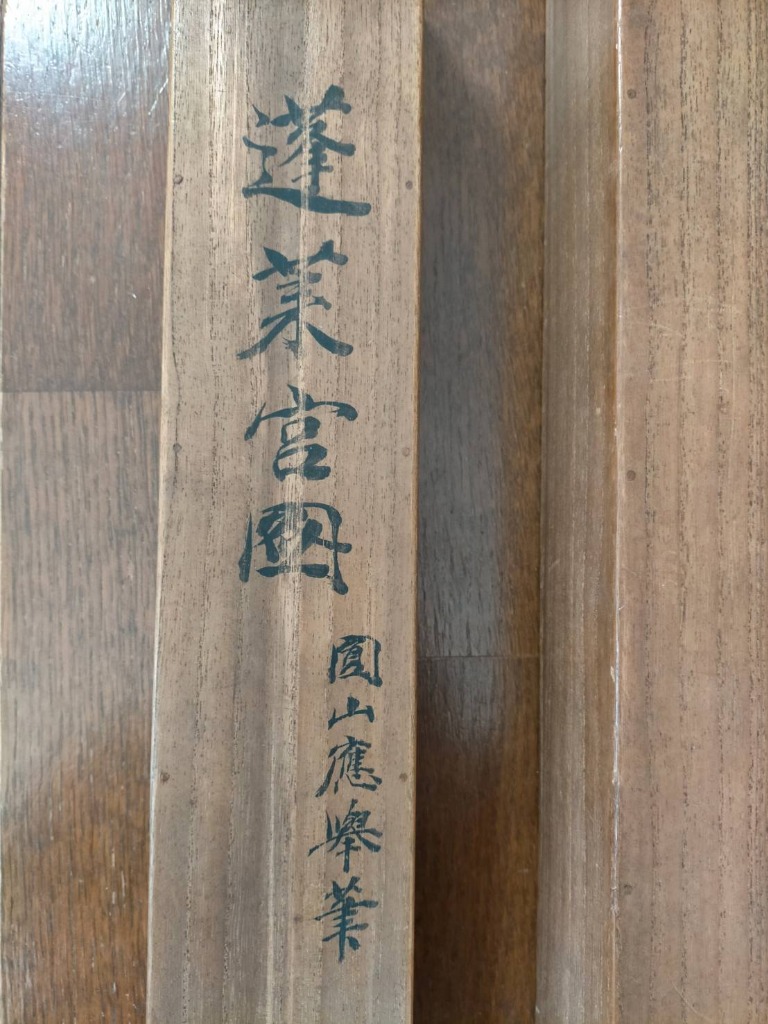 蓬莱宮圖
圓山應擧筆